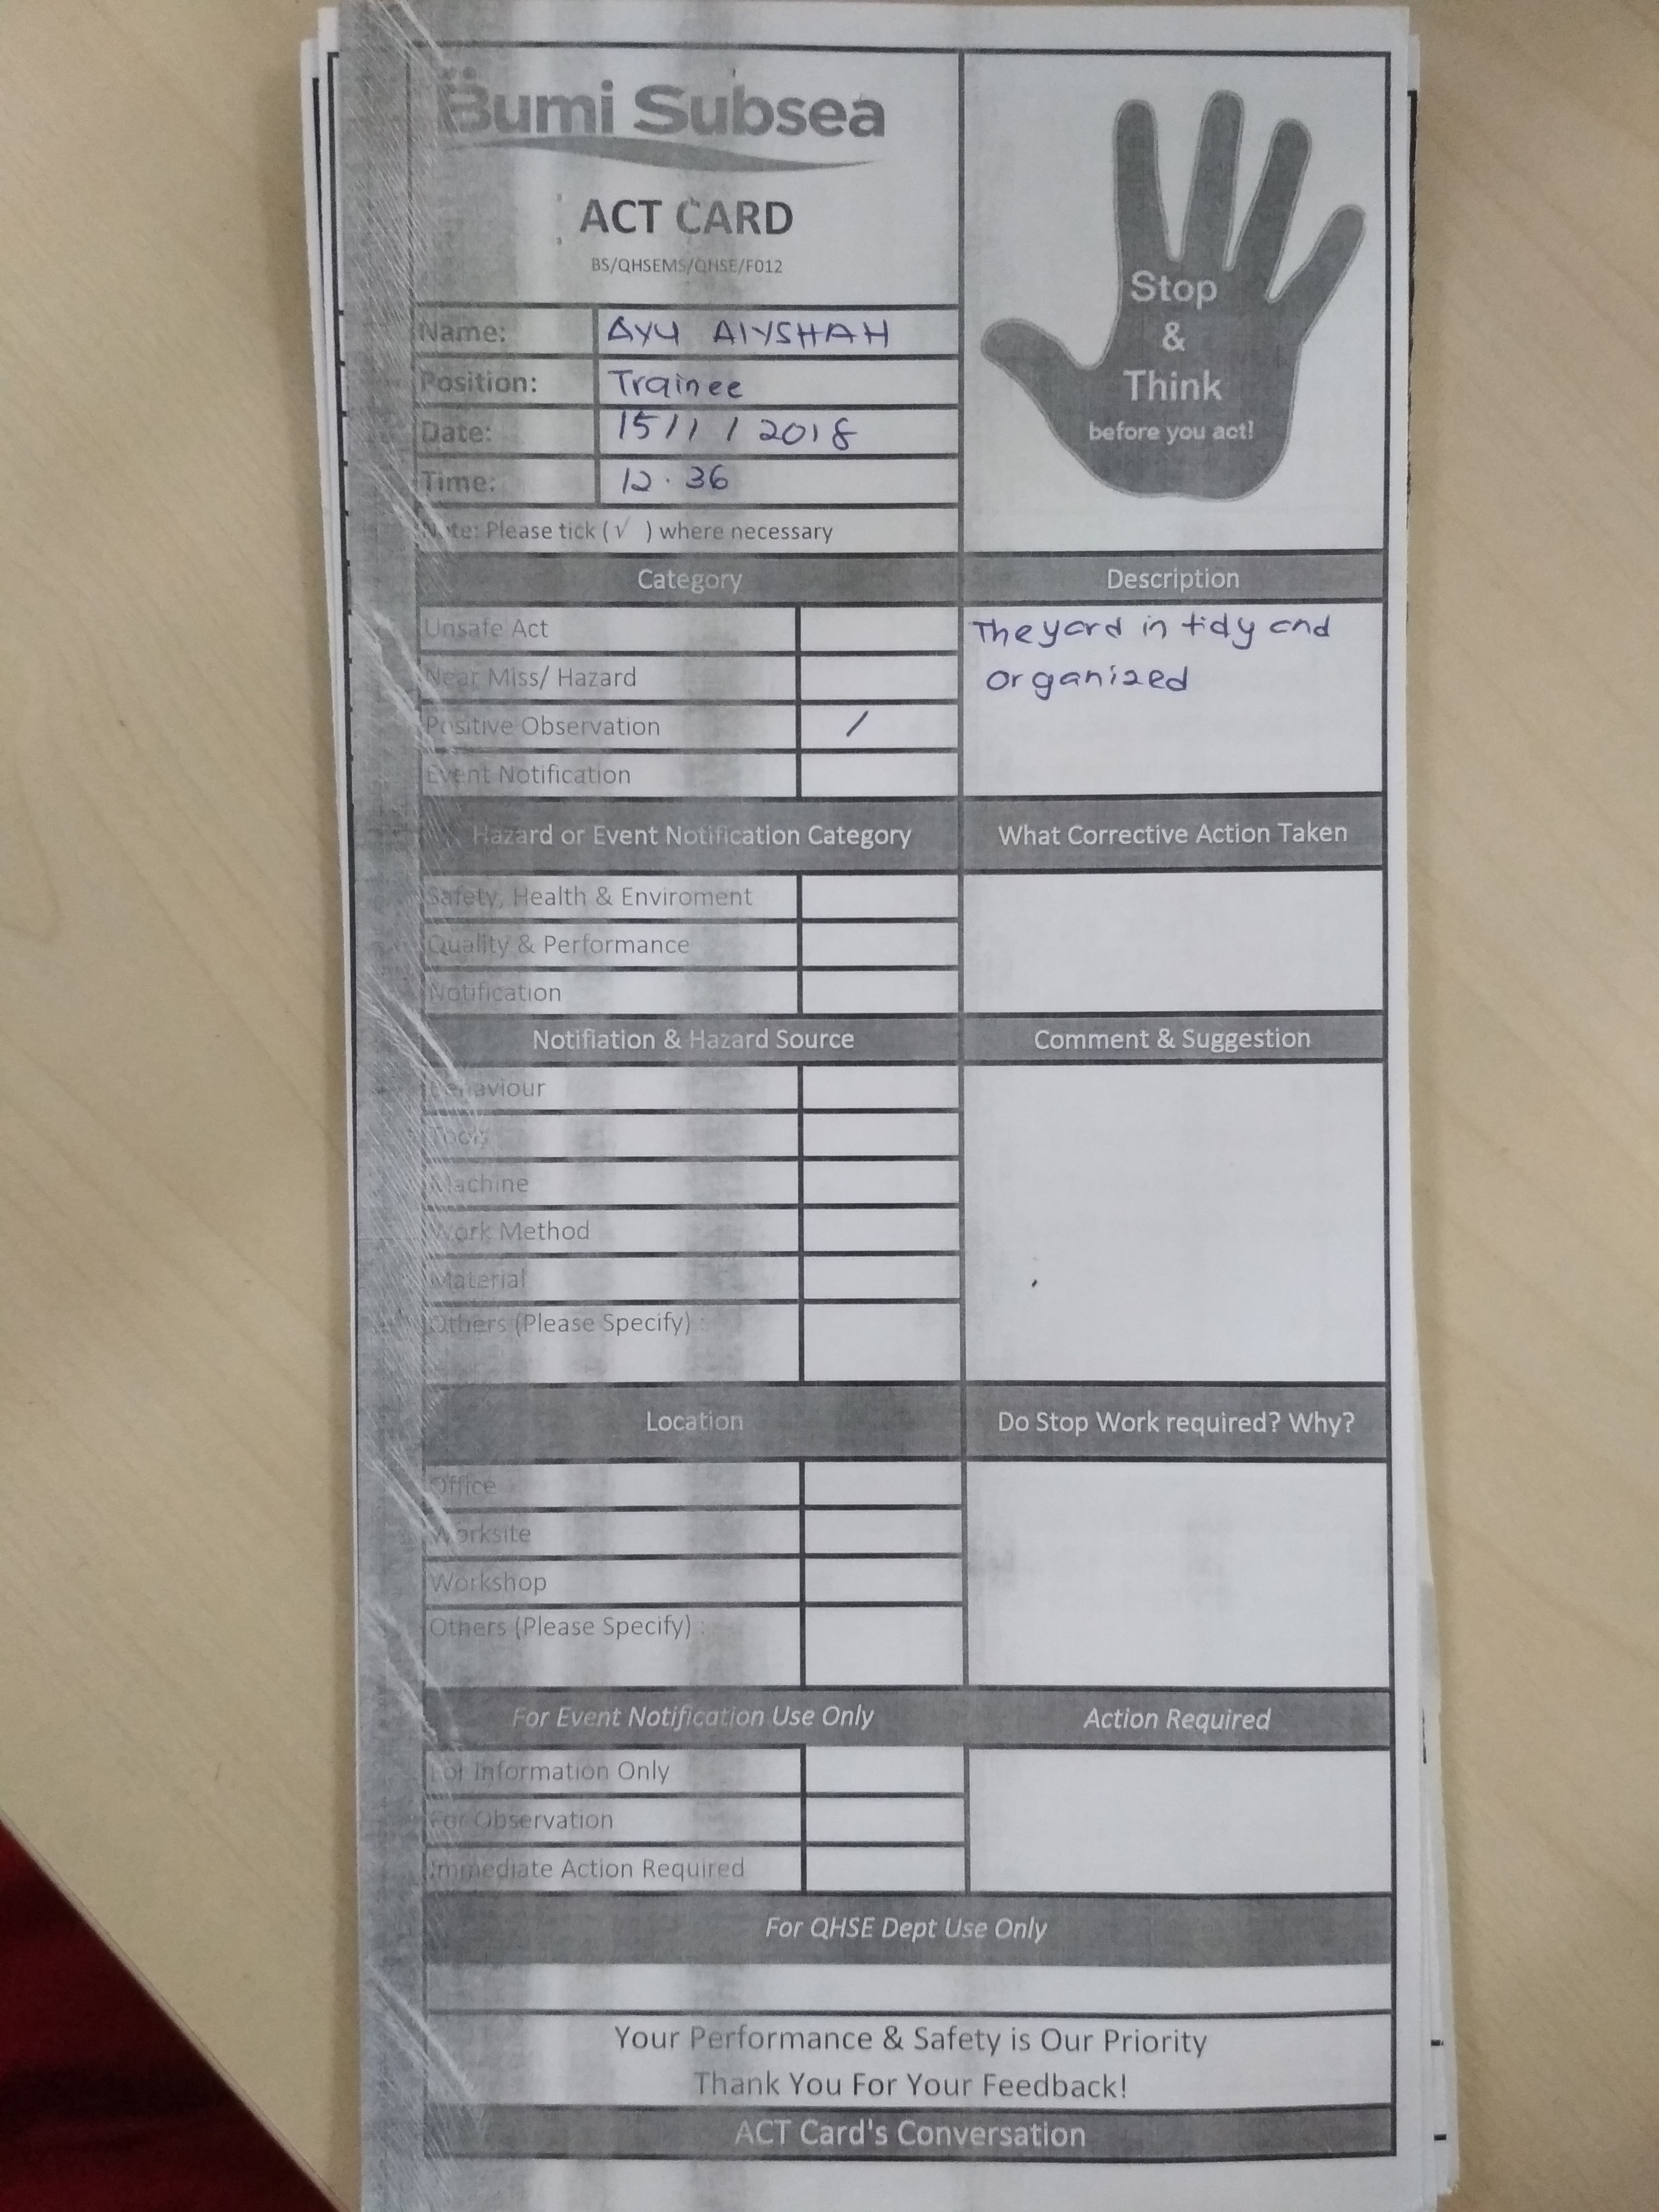 Bumi Subsea
ACT CARD
BS/QHSEMS/QHSE/F012
Stop
&
Think
before you act!
Name: AYU AIYSHAH
Position: Trainee
Date: 15/1/2018
Time: 12.36
Note: Please tick (√ ) where necessary
Category
Description
Unsafe Act
Near Miss/ Hazard
Positive Observation /
Event Notification
The yard in tidy and
organized
Hazard or Event Notification Category
What Corrective Action Taken
Safety, Health & Enviroment
Quality & Performance
Notification
Notifiation & Hazard Source
Comment & Suggestion
Behaviour
Tools
Machine
Work Method
Material
Others (Please Specify) :
Location
Do Stop Work required? Why?
Office
Worksite
Workshop
Others (Please Specify) :
For Event Notification Use Only
Action Required
For Information Only
For Observation
Immediate Action Required
For QHSE Dept Use Only
Your Performance & Safety is Our Priority
Thank You For Your Feedback!
ACT Card's Conversation